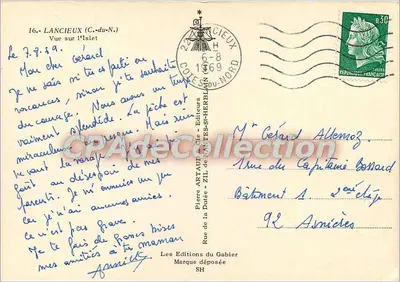 16.- LANCIEUX (C.-du-N.)
Vue sur l'Islet
Le 7.8.69
Mon cher Gérard
Je ne sais si tu es parti en
vacances, sinon je te souhaite
du courage. Nous avons un temps
vraiment splendide. La pêche est
miraculeuse
Mais
avant la
font au désespoir de mes
parents. Je m'ennuie un peu
car je n'ai aucun ami.
Ce n'est pas grave.
Je te fais de grosses bises
mes amitiés à ta maman
Annick
22 LANCIEUX
H
6-8
1969
COTES-DU-NORD
0,50
REPUBLIQUE FRANÇAISE
Pierre ARTAUD
Editeurs
Rue de la Dutée - ZIL de
NTES-St-HERBLAIN
CPAdeCollection
Mr Gérard
1 rue du Capitaine Bossard
Bâtiment 1 2ème étg
92 Asnières
Les Editions du Gabier
Marque déposée
SH